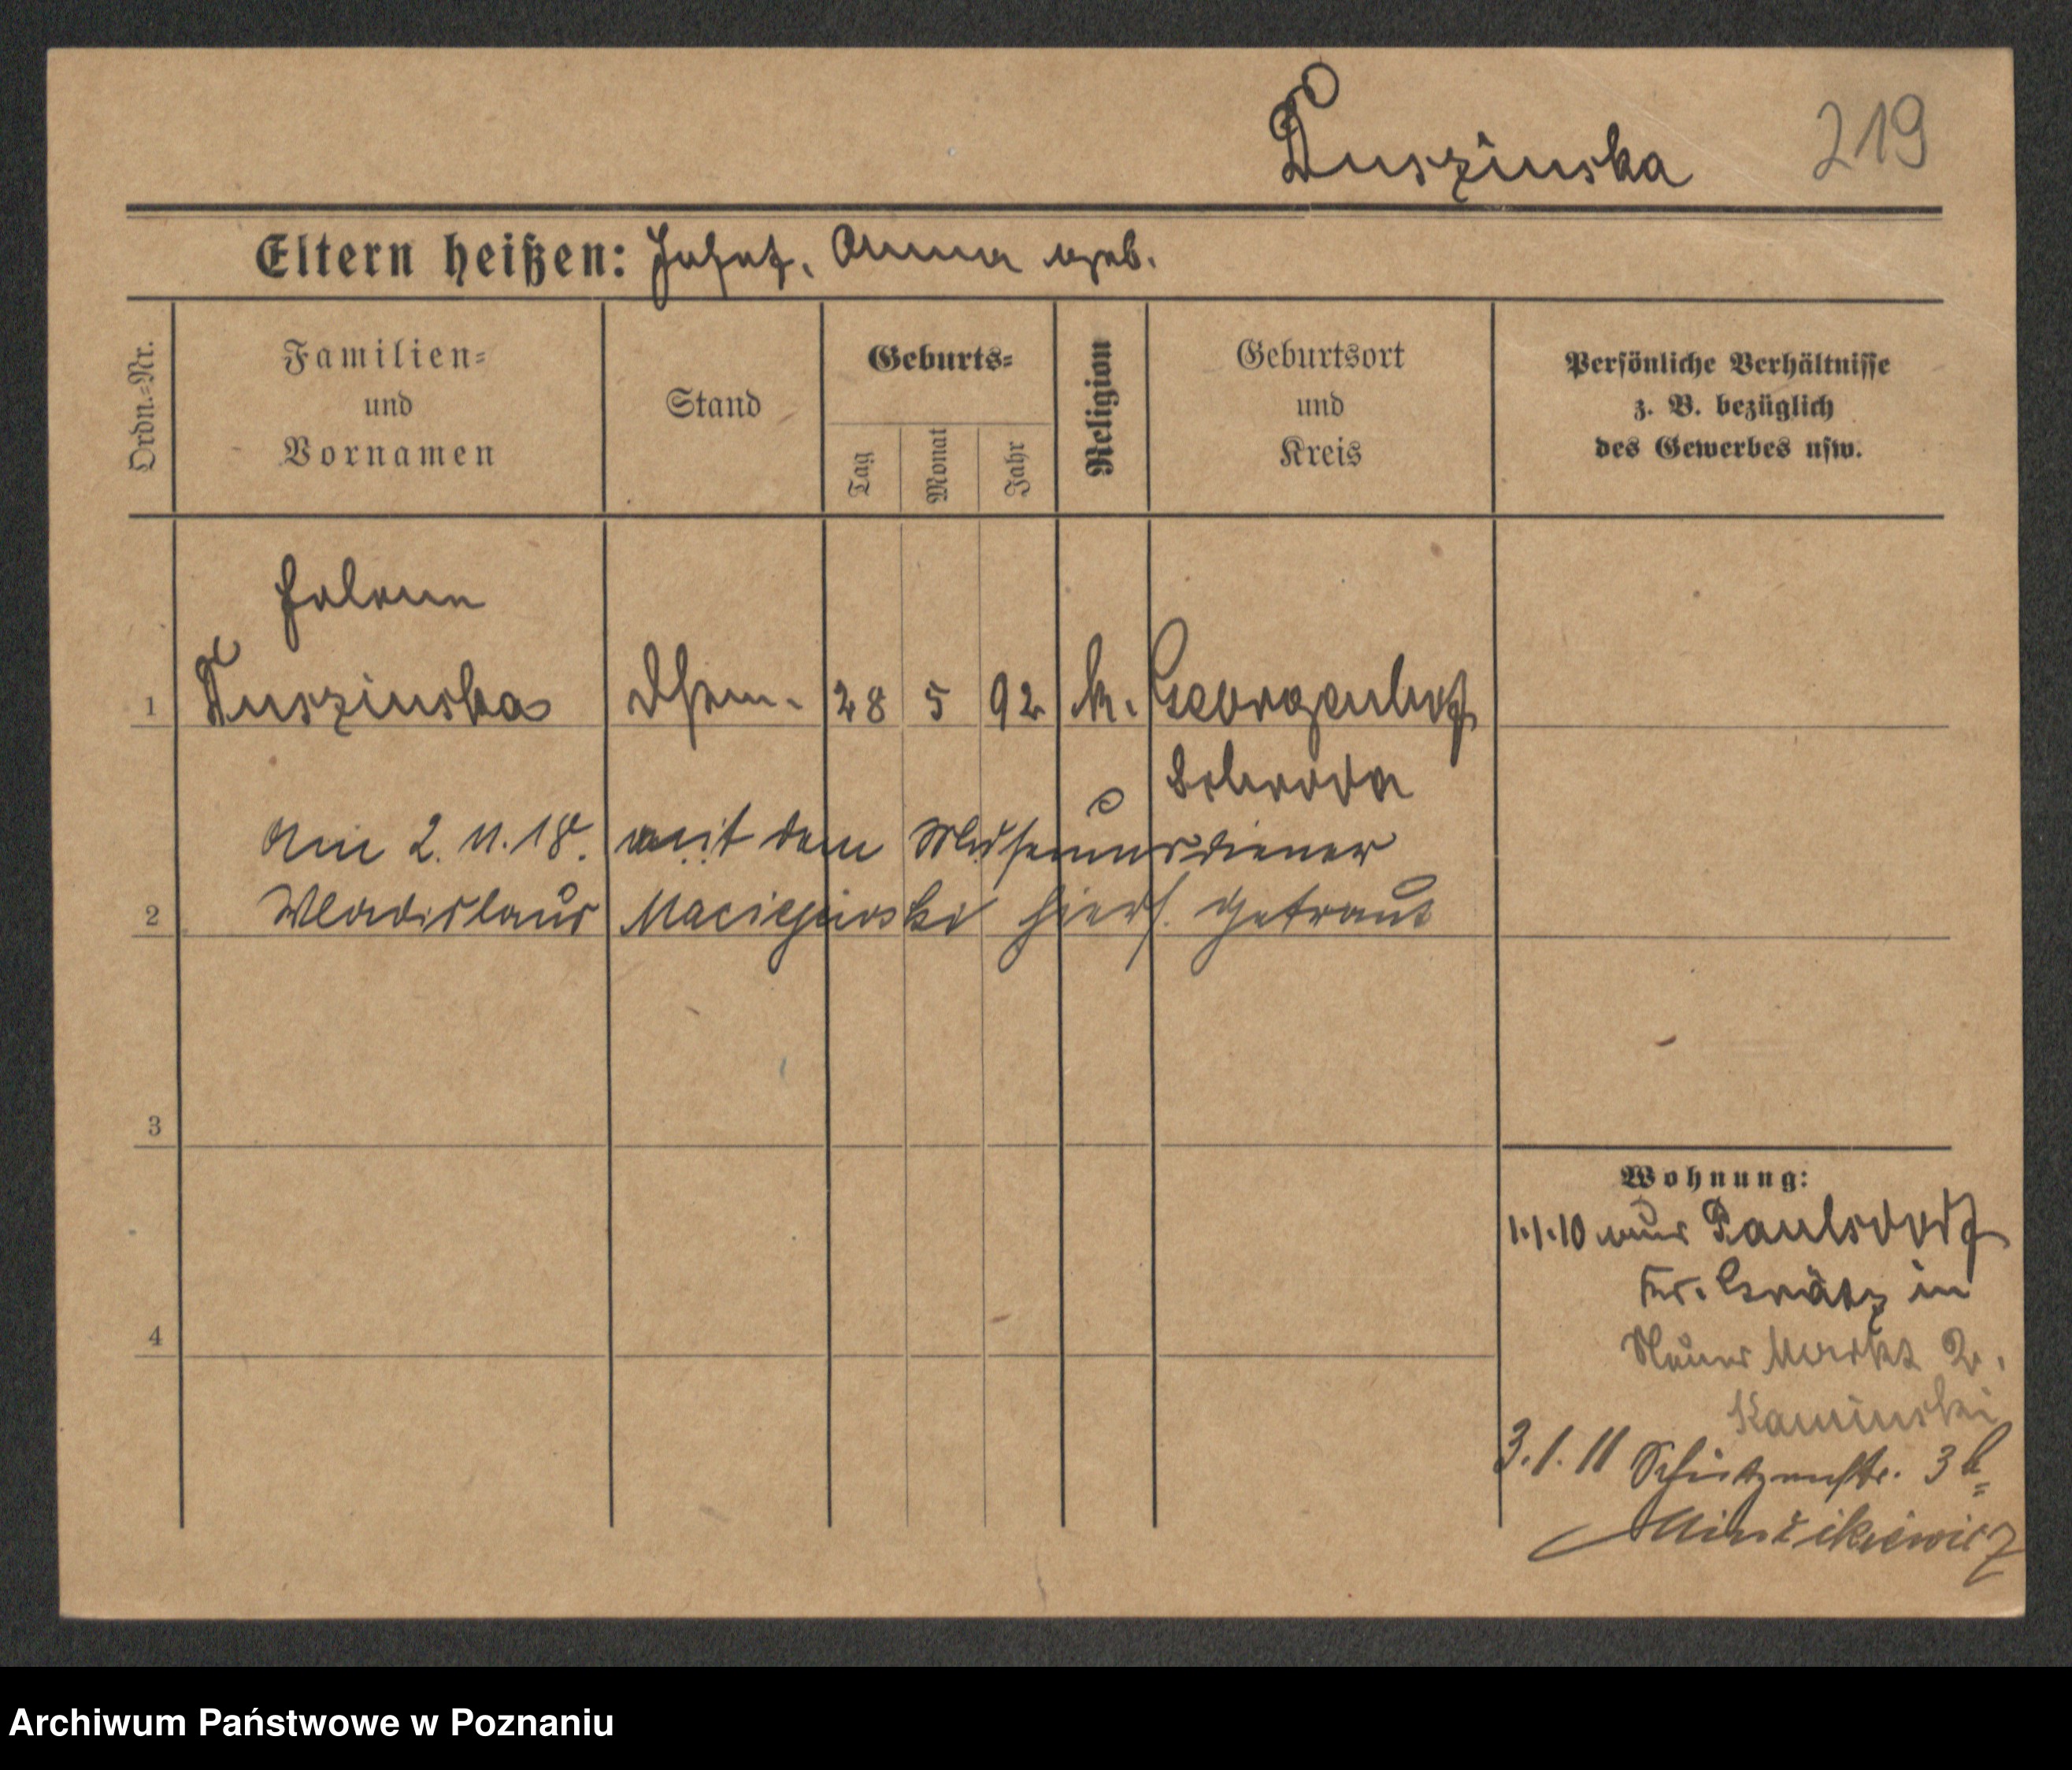 Duszinska 219
Eltern heißen: Josef, Anna geb.
Ordn.=Nr. Familien= und Vornamen Stand Geburts= Tag Monat Jahr Religion Geburtsort und Kreis Persönliche Verhältnisse z. B. bezüglich des Gewerbes usw.
Helene
1 Duszinska 28 5 92 k. Georgenhof
Schroda
Am 2. 11. 18. mit dem Museumsdiener
2 Wladislaus Maciejewski hiers. getraut
3
Wohnung:
1.1.10 aus Paulsdorf
Kr. Grätz in
4 Neuer Markt 2.
Kaminski
3.1.11 Schützenstr. 3b
Archiwum Państwowe w Poznaniu